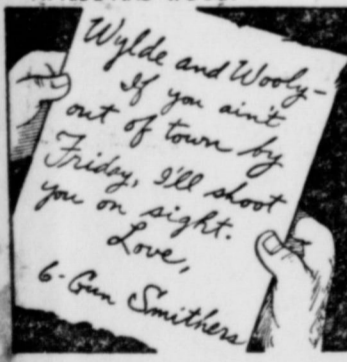 Wylde and Wooly-
If you ain't
out of town by
Friday, I'll shoot
you on sight.
Love,
6-Gun Smithers